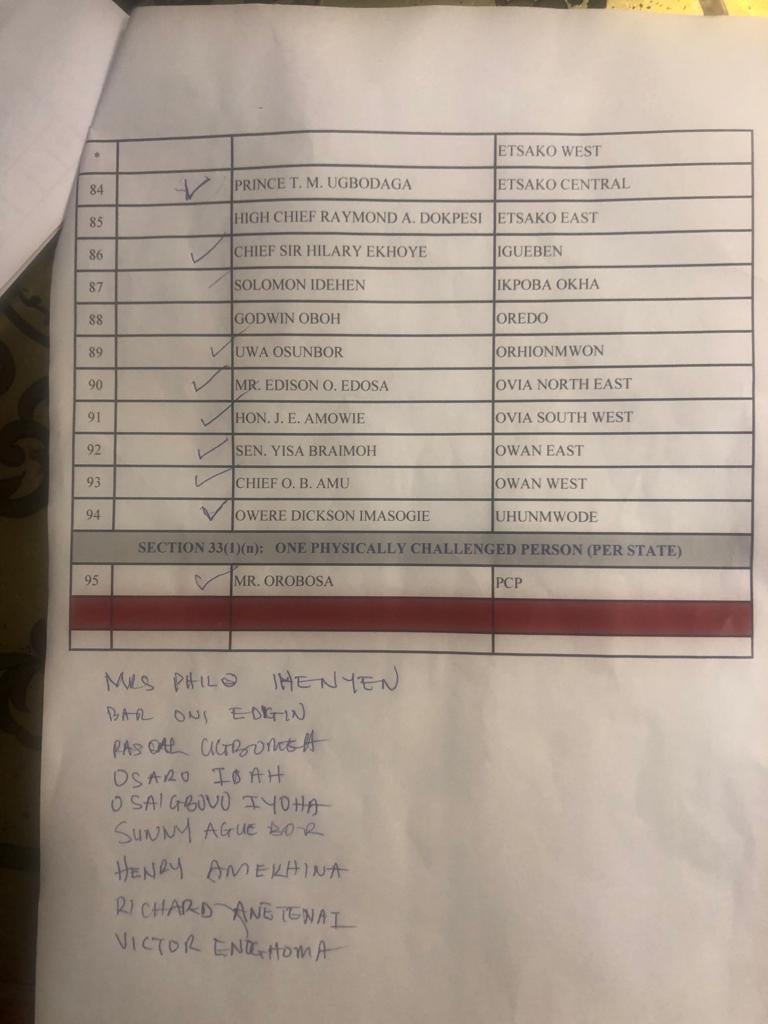 • ETSAKO WEST
84 PRINCE T. M. UGBODAGA ETSAKO CENTRAL
85 HIGH CHIEF RAYMOND A. DOKPESI ETSAKO EAST
86 CHIEF SIR HILARY EKHOYE IGUEBEN
87 SOLOMON IDEHEN IKPOBA OKHA
88 GODWIN OBOH OREDO
89 UWA OSUNBOR ORHIONMWON
90 MR. EDISON O. EDOSA OVIA NORTH EAST
91 HON. J. E. AMOWIE OVIA SOUTH WEST
92 SEN. YISA BRAIMOH OWAN EAST
93 CHIEF O. B. AMU OWAN WEST
94 OWERE DICKSON IMASOGIE UHUNMWODE
SECTION 33(1)(n): ONE PHYSICALLY CHALLENGED PERSON (PER STATE)
95 MR. OROBOSA PCP
MRS PHILO IHENYEN
BAR ONI
PASCAL UGBOMEH
OSARO IDAH
OSAIGBOVO IYOHA
SUNNY AGUEBOR
HENRY AMEKHINA
RICHARD
VICTOR